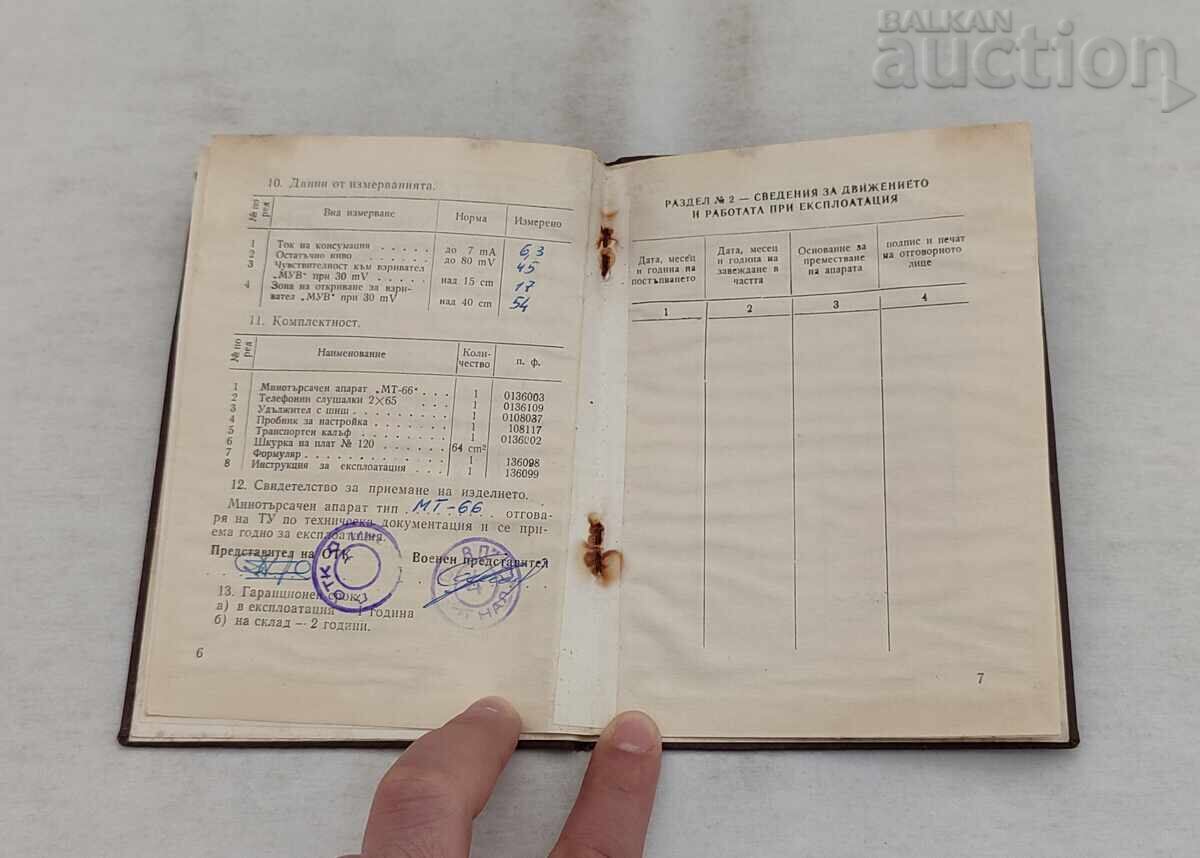 BALKAN
auction
10. Данни от измерванията.
№ по ред Вид измерване Норма Измерено
1 Ток на консумация . . . . . до 7 mA 6,3
2 Остатъчно ниво . . . . . . до 80 mV 45
3 Чувствителност към взривател
„МУВ“ при 30 mV . . . . . . над 15 cm 17
4 Зона на откриване за взри-
вател „МУВ“ при 30 mV над 40 cm 54
11. Комплектност.
№ по ред Наименование Коли-
чество п. ф.
1 Минотърсачен апарат „МТ-66“ . . . 1 0136003
2 Телефонни слушалки 2×65 . . . 1 0136109
3 Удължител с шиш . . . . . . . . 1 0108037
4 Пробник за настройка . . . . . . . 1 108117
5 Транспортен калъф . . . . . . . 1 0136002
6 Шкурка на плат № 120 . . . . . . 64 cm²
7 Формуляр . . . . . . . . . . . 1 136098
8 Инструкция за експлоатация . . . 1 136099
12. Свидетелство за приемане на изделнето.
Минотърсачен апарат тип МТ-66 отгова-
ря на ТУ по техническа документация и се при-
ема годно за експлоатация.
Представител на ОТК Военен представител
ОТК
13. Гаранционен срок:
а) в експлоатация — 1 година
б) на склад — 2 години.
6
РАЗДЕЛ № 2 — СВЕДЕНИЯ ЗА ДВИЖЕНИЕТО
И РАБОТАТА ПРИ ЕКСПЛОАТАЦИЯ
Дата, месец
и година на
постъпването
Дата, месец
и година на
завеждане в
частта
Основание за
преместване
на апарата
подпис и печат
на отговорното
лице
1 2 3 4
7